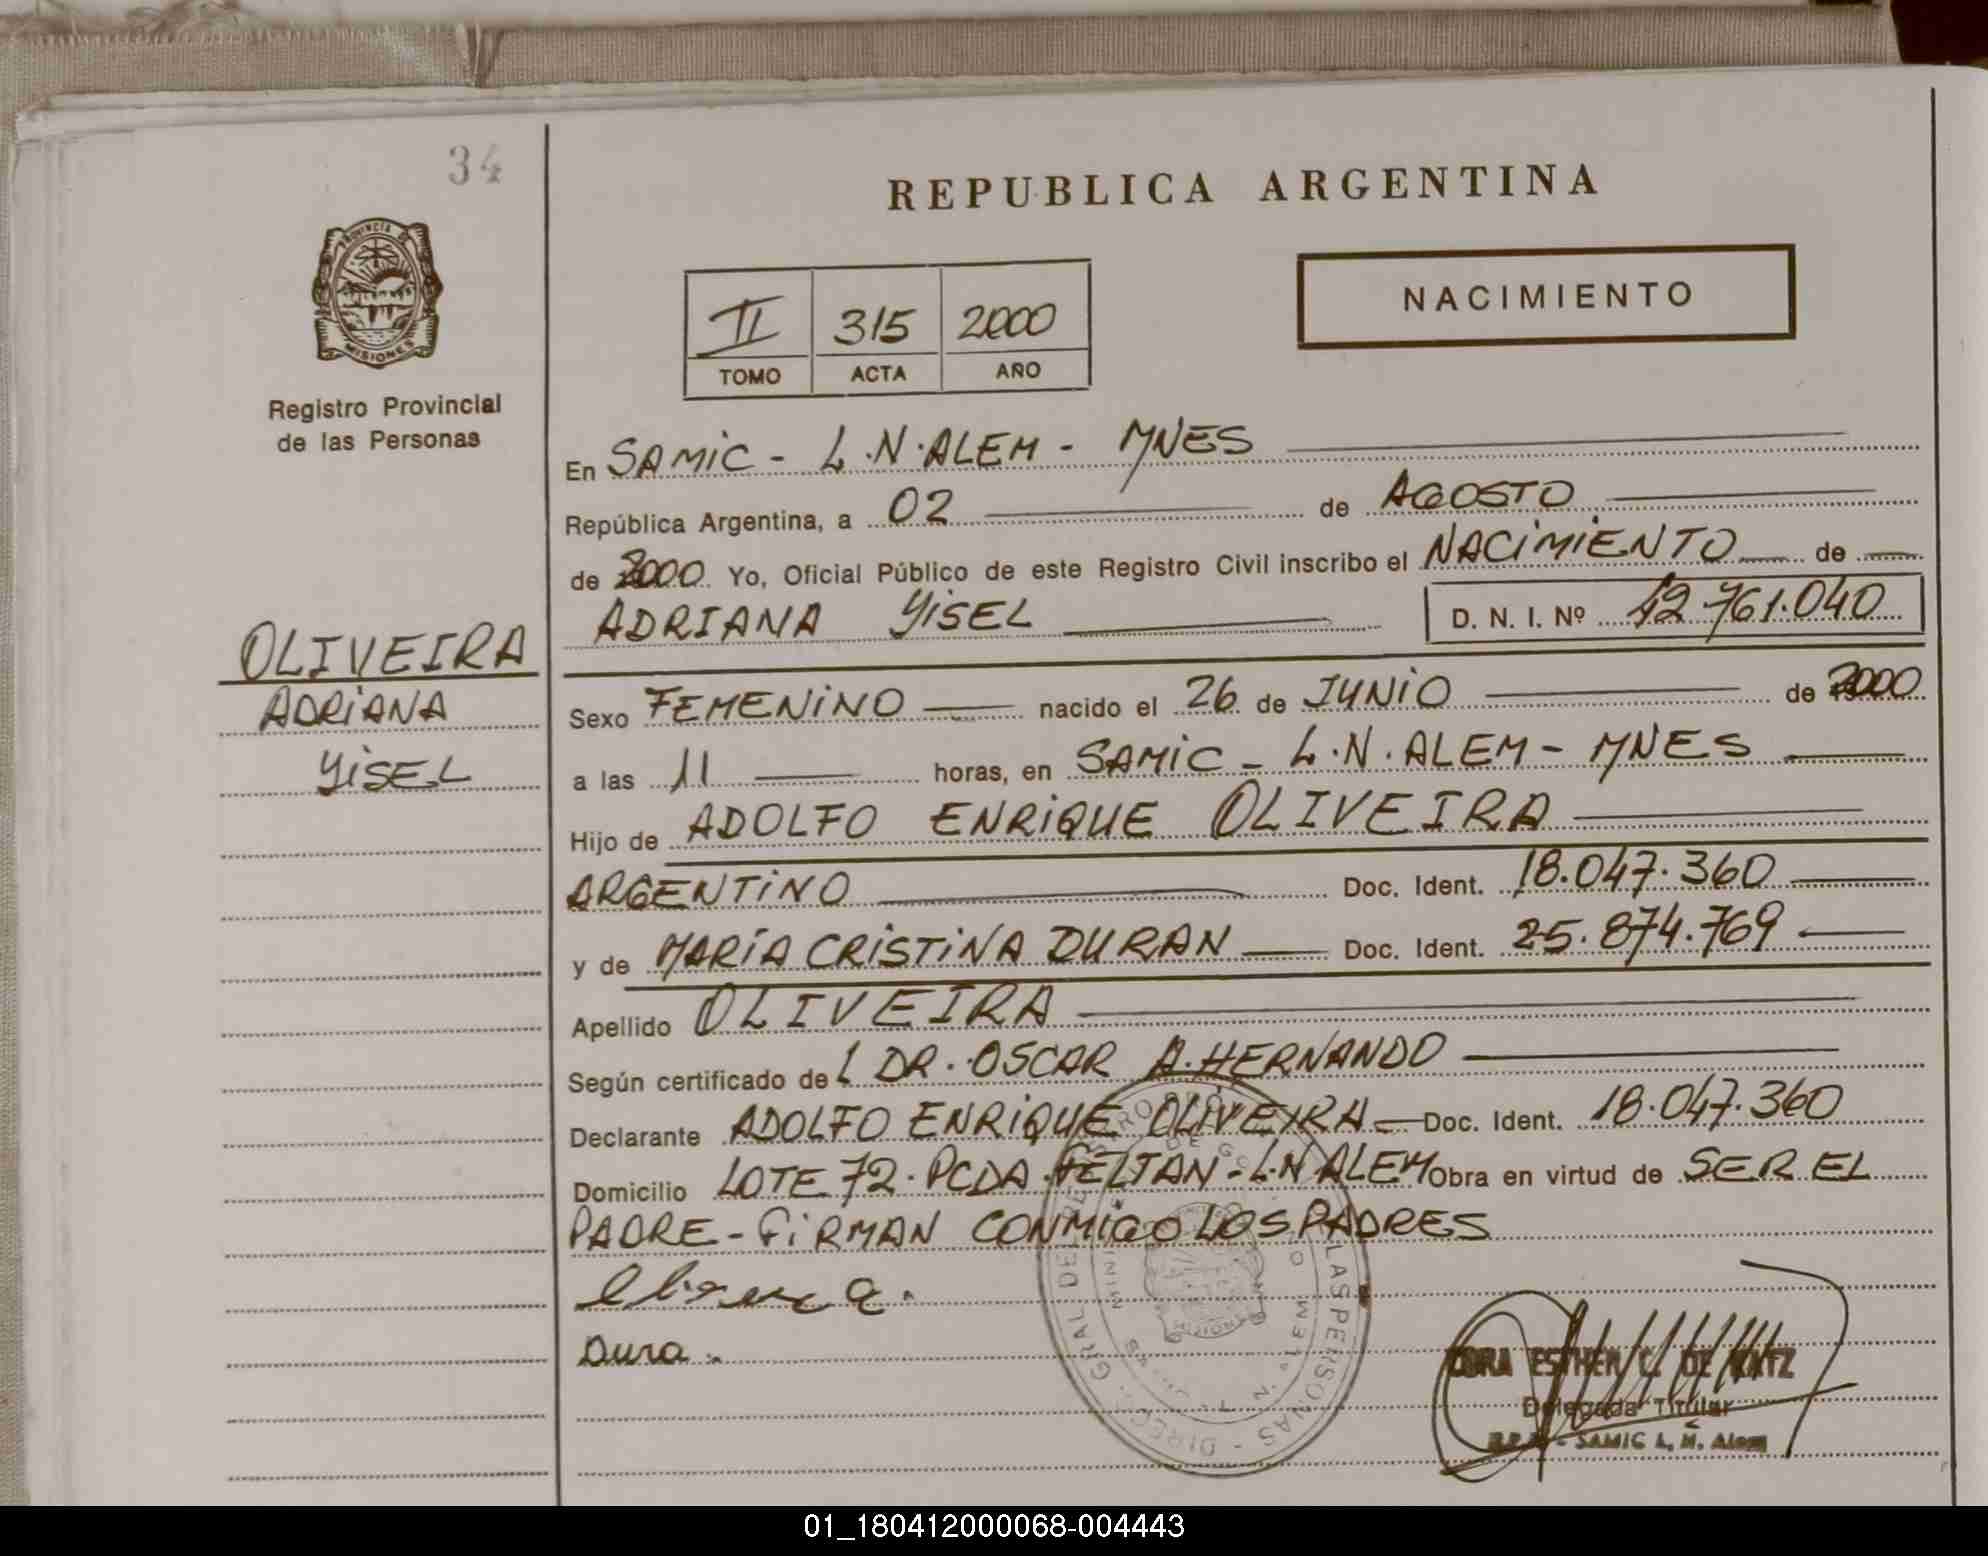 34
REPUBLICA ARGENTINA
PROVINCIA DE
MISIONES
NACIMIENTO
II 315 2000
TOMO ACTA AÑO
Registro Provincial
de las Personas
En SAMIC - L.N.ALEM - MNES
República Argentina, a 02 de AGOSTO
de 2000 Yo, Oficial Público de este Registro Civil inscribo el NACIMIENTO de
ADRIANA YISEL D. N. I. Nº 42.761.040
OLIVEIRA
ADRIANA
YISEL
Sexo FEMENINO nacido el 26 de JUNIO de 2000
a las 11 horas, en SAMIC - L.N.ALEM - MNES
Hijo de ADOLFO ENRIQUE OLIVEIRA
ARGENTINO Doc. Ident. 18.047.360
y de MARIA CRISTINA DURAN Doc. Ident. 25.874.769
Apellido OLIVEIRA
Según certificado del DR. OSCAR A. HERNANDO
Declarante ADOLFO ENRIQUE OLIVEIRA Doc. Ident. 18.047.360
Domicilio LOTE 72. PCDA. FELTAN - L.N ALEM Obra en virtud de SER EL
PADRE - FIRMAN CONMIGO LOS PADRES
Dura.
ESTHER C. DE KATZ
Delegada Titular
SAMIC L. N. Alem
01_180412000068-004443